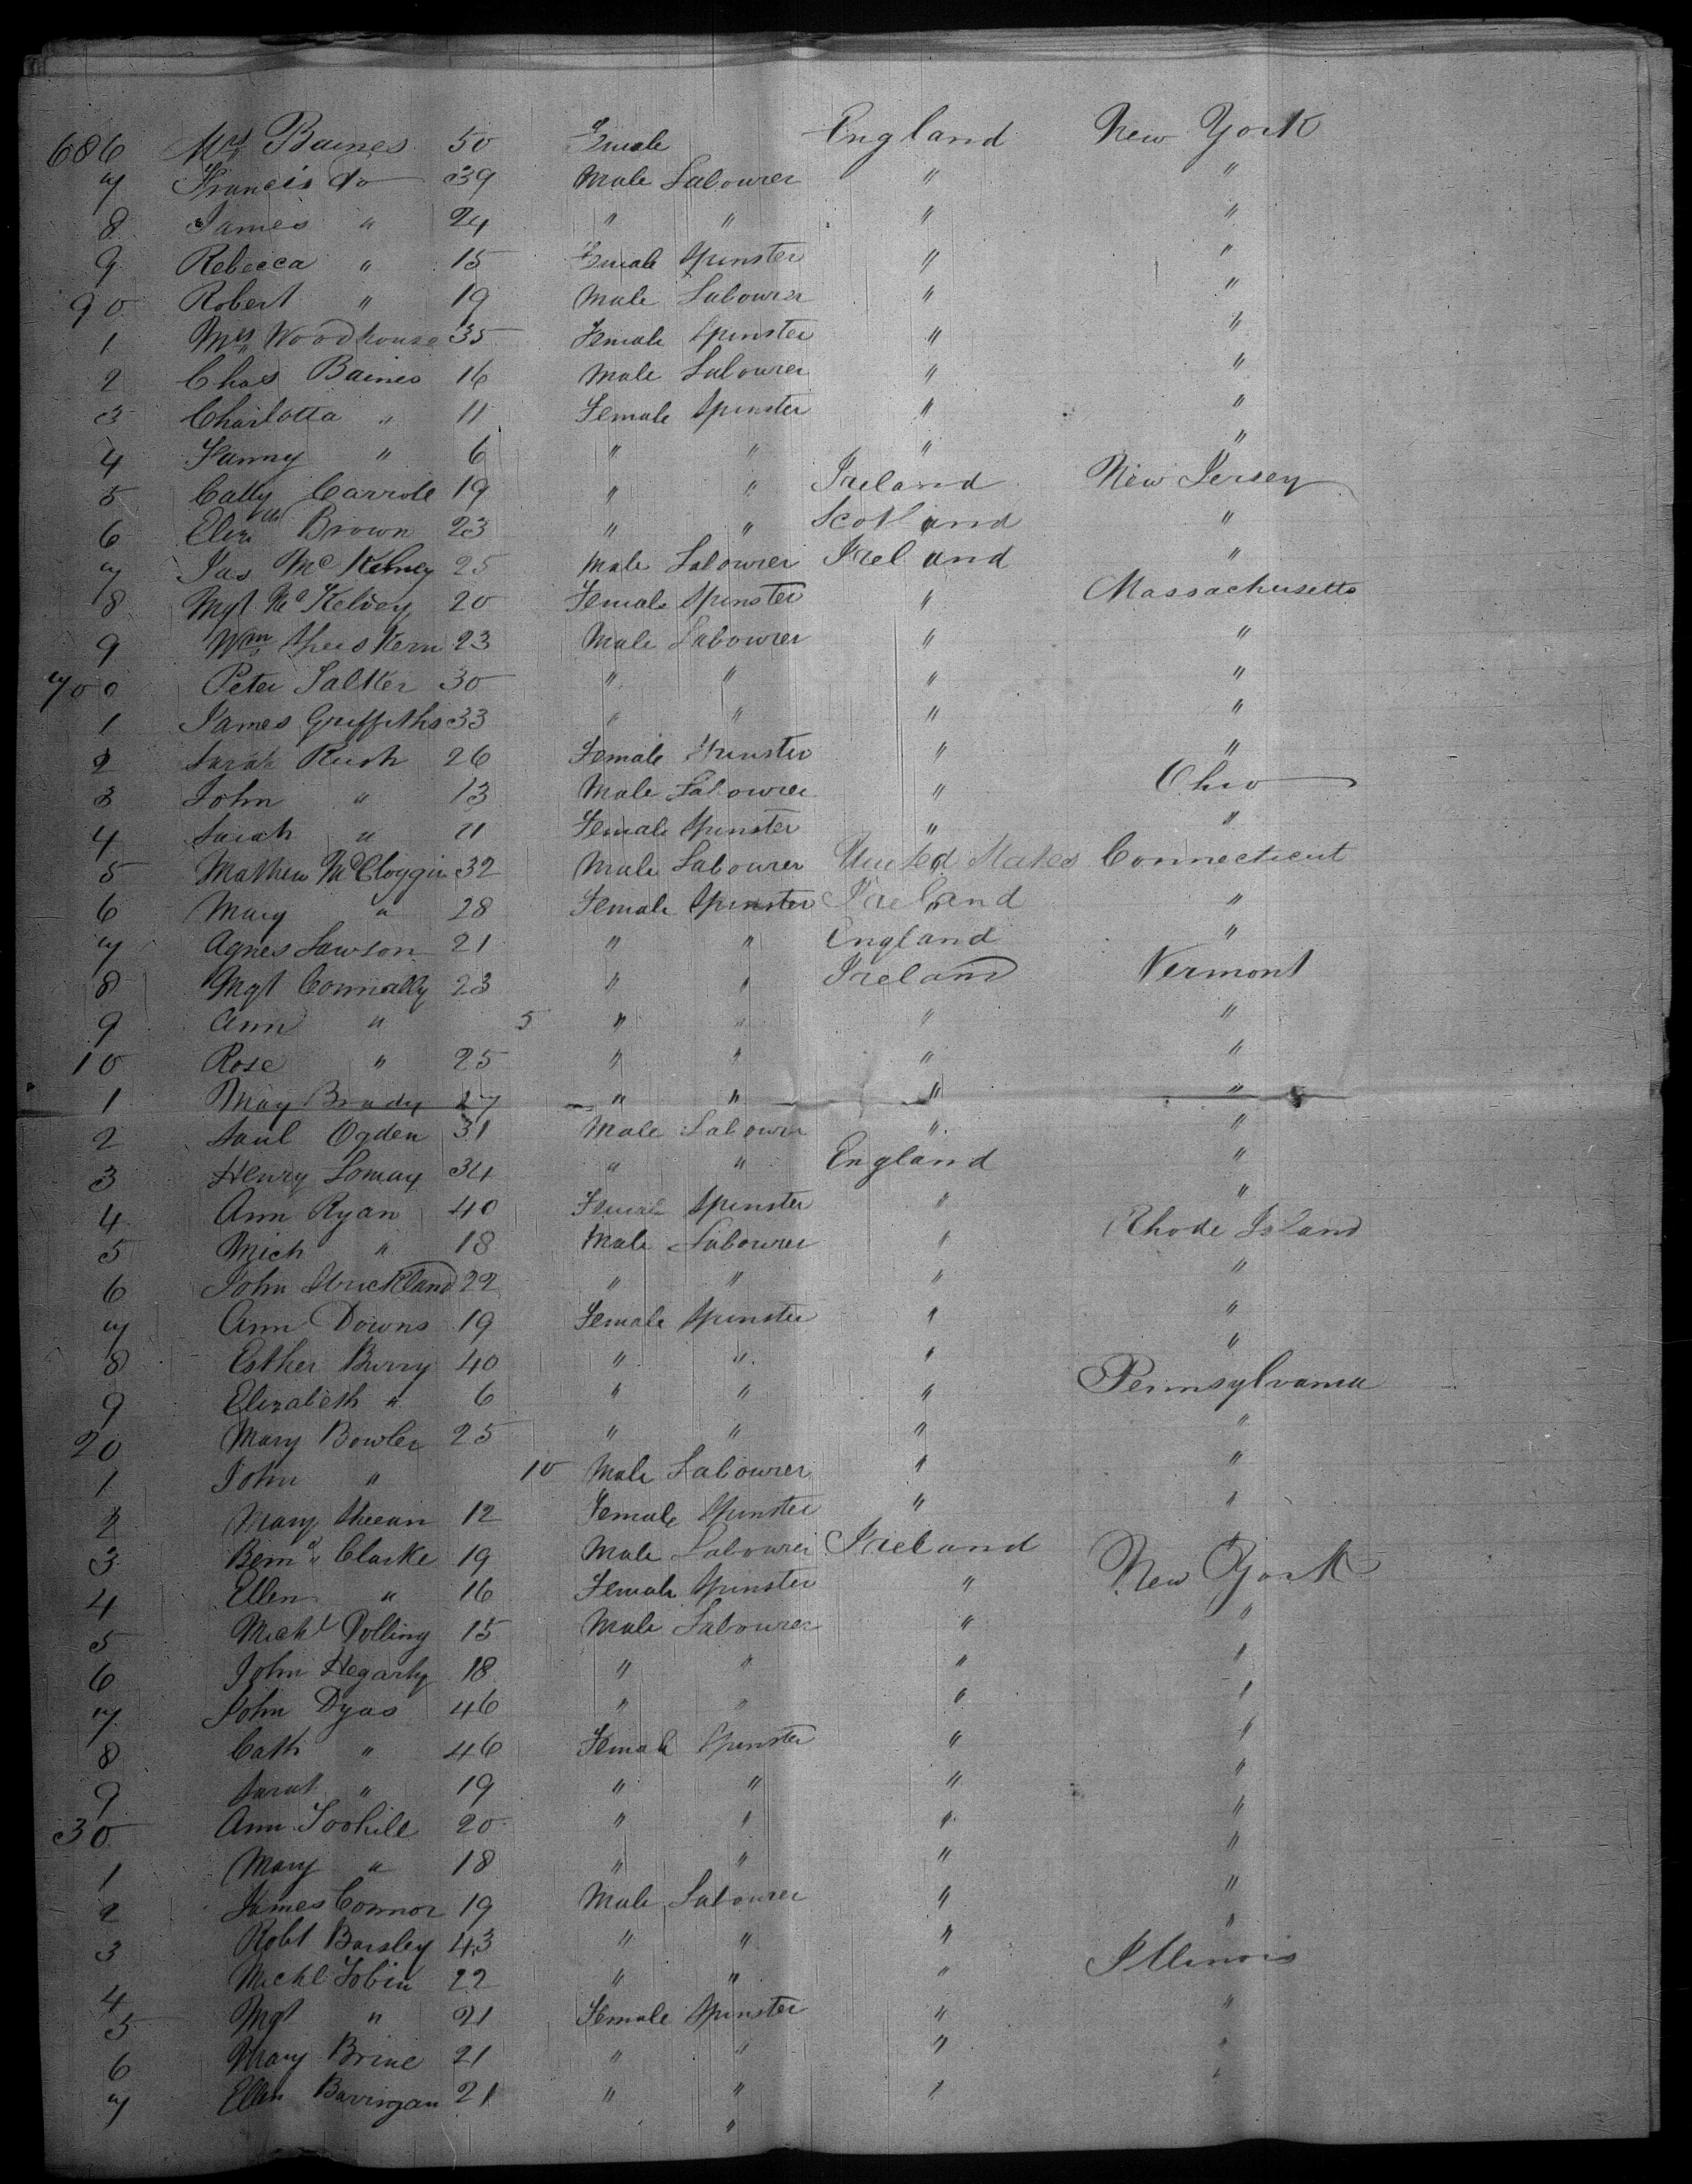 686 Mrs Baines 50 Female England New York
7 Francis do 39 Male Labourer " "
8 James " 24 " " " "
9 Rebecca " 15 Female Spinster " "
90 Robert " 19 Male Labourer " "
1 Mrs Woodhouse 35 Female Spinster " "
2 Chas Baines 16 Male Labourer " "
3 Charlotta " 11 Female Spinster " "
4 Fanny " 6 " " " "
5 Cathy Carrole 19 " " Ireland New Jersey
6 Elizth Brown 23 " " Scotland "
7 Jas McKelvey 25 Male Labourer Ireland "
8 Mgt McKelvey 20 Female Spinster " Massachusetts
9 Wm 23 Male Labourer " "
700 Peter Salker 30 " " " "
1 James Griffiths 33 " " " "
2 Sarah Rush 26 Female Spinster " "
3 John " 13 Male Labourer " Ohio
4 Sarah " 11 Female Spinster " "
5 Mathew McCloggin 32 Male Labourer United States Connecticut
6 Mary " 28 Female Spinster Ireland "
7 Agnes Lawson 21 " " England "
8 Mgt Connally 23 " " Ireland Vermont
9 Ann " 5 " " " "
10 Rose " 25 " " " "
1 May Brady 27 " " " "
2 Saul Ogden 31 Male Labourer " "
3 Henry Lomax 34 " " England "
4 Ann Ryan 40 Female Spinster " "
5 Mich " 18 Male Labourer " Rhode Island
6 John Strickland 22 " " " "
7 Ann Downs 19 Female Spinster " "
8 Esther Burry 40 " " " "
9 Elizabeth " 6 " " " Pennsylvania
20 Mary Bowler 25 " " " "
1 John " 10 Male Labourer " "
2 Mary Sheean 12 Female Spinster " "
3 Bernd Clarke 19 Male Labourer Ireland New York
4 Ellen " 16 Female Spinster "
5 Michl Polling 15 Male Labourer " "
6 John Hegarty 18 " " " "
7 John Dyas 46 " " " "
8 Cath " 46 Female Spinster " "
9 Sarah " 19 " " " "
30 Ann Toohill 20 " " " "
1 Mary " 18 " " " "
2 James Connor 19 Male Labourer " "
3 Robt Barsley 43 " " " "
4 Michl Tobin 22 " " " Illinois
5 Mgt " 21 Female Spinster " "
6 Mary Brine 21 " " " "
7 Ellen Barrigan 21 " " " "
"